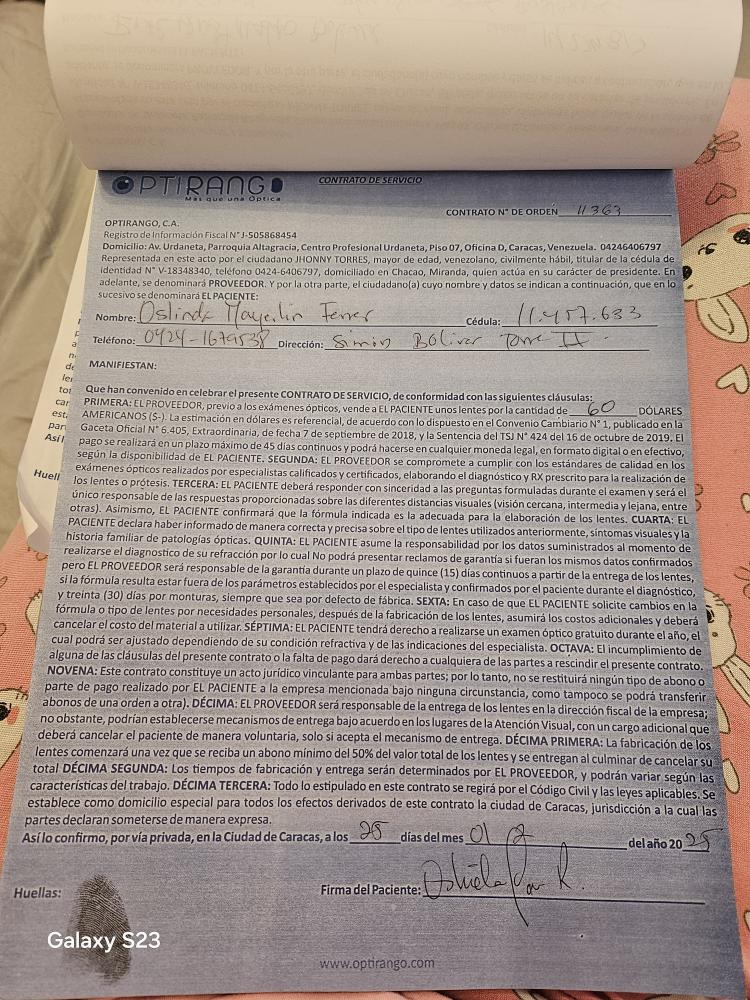 OPTIRANGO
Mas que una Optica
CONTRATO DE SERVICIO
CONTRATO N° DE ORDEN 11363
OPTIRANGO, C.A.
Registro de Información Fiscal N° J-505868454
Domicilio: Av. Urdaneta, Parroquia Altagracia, Centro Profesional Urdaneta, Piso 07, Oficina D, Caracas, Venezuela. 04246406797
Representada en este acto por el ciudadano JHONNY TORRES, mayor de edad, venezolano, civilmente hábil, titular de la cédula de
identidad N° V-18348340, teléfono 0424-6406797, domiciliado en Chacao, Miranda, quien actúa en su carácter de presidente. En
adelante, se denominará PROVEEDOR. Y por la otra parte, el ciudadano(a) cuyo nombre y datos se indican a continuación, que en lo
sucesivo se denominará EL PACIENTE:
Nombre: Oslinda Mayerlin Ferrer Cédula: 11.457.633
Teléfono: 0424-1679538 Dirección: Simón Bolívar Torre II.
MANIFIESTAN:
Que han convenido en celebrar el presente CONTRATO DE SERVICIO, de conformidad con las siguientes cláusulas:
PRIMERA: EL PROVEEDOR, previo a los exámenes ópticos, vende a EL PACIENTE unos lentes por la cantidad de 60 DÓLARES
AMERICANOS ($-). La estimación en dólares es referencial, de acuerdo con lo dispuesto en el Convenio Cambiario N° 1, publicado en la
Gaceta Oficial N° 6.405, Extraordinaria, de fecha 7 de septiembre de 2018, y la Sentencia del TSJ N° 424 del 16 de octubre de 2019. El
pago se realizará en un plazo máximo de 45 días continuos y podrá hacerse en cualquier moneda legal, en formato digital o en efectivo,
según la disponibilidad de EL PACIENTE. SEGUNDA: EL PROVEEDOR se compromete a cumplir con los estándares de calidad en los
exámenes ópticos realizados por especialistas calificados y certificados, elaborando el diagnóstico y RX prescrito para la realización de
los lentes o prótesis. TERCERA: EL PACIENTE deberá responder con sinceridad a las preguntas formuladas durante el examen y será el
único responsable de las respuestas proporcionadas sobre las diferentes distancias visuales (visión cercana, intermedia y lejana, entre
otras). Asimismo, EL PACIENTE confirmará que la fórmula indicada es la adecuada para la elaboración de los lentes. CUARTA: EL
PACIENTE declara haber informado de manera correcta y precisa sobre el tipo de lentes utilizados anteriormente, síntomas visuales y la
historia familiar de patologías ópticas. QUINTA: EL PACIENTE asume la responsabilidad por los datos suministrados al momento de
realizarse el diagnostico de su refracción por lo cual No podrá presentar reclamos de garantía si fueran los mismos datos confirmados
pero EL PROVEEDOR será responsable de la garantía durante un plazo de quince (15) días continuos a partir de la entrega de los lentes,
si la fórmula resulta estar fuera de los parámetros establecidos por el especialista y confirmados por el paciente durante el diagnóstico,
y treinta (30) días por monturas, siempre que sea por defecto de fábrica. SEXTA: En caso de que EL PACIENTE solicite cambios en la
fórmula o tipo de lentes por necesidades personales, después de la fabricación de los lentes, asumirá los costos adicionales y deberá
cancelar el costo del material a utilizar. SÉPTIMA: EL PACIENTE tendrá derecho a realizarse un examen óptico gratuito durante el año, el
cual podrá ser ajustado dependiendo de su condición refractiva y de las indicaciones del especialista. OCTAVA: El incumplimiento de
alguna de las cláusulas del presente contrato o la falta de pago dará derecho a cualquiera de las partes a rescindir el presente contrato.
NOVENA: Este contrato constituye un acto jurídico vinculante para ambas partes; por lo tanto, no se restituirá ningún tipo de abono o
parte de pago realizado por EL PACIENTE a la empresa mencionada bajo ninguna circunstancia, como tampoco se podrá transferir
abonos de una orden a otra). DÉCIMA: EL PROVEEDOR será responsable de la entrega de los lentes en la dirección fiscal de la empresa;
no obstante, podrían establecerse mecanismos de entrega bajo acuerdo en los lugares de la Atención Visual, con un cargo adicional que
deberá cancelar el paciente de manera voluntaria, solo si acepta el mecanismo de entrega. DÉCIMA PRIMERA: La fabricación de los
lentes comenzará una vez que se reciba un abono mínimo del 50% del valor total de los lentes y se entregan al culminar de cancelar su
total DÉCIMA SEGUNDA: Los tiempos de fabricación y entrega serán determinados por EL PROVEEDOR, y podrán variar según las
características del trabajo. DÉCIMA TERCERA: Todo lo estipulado en este contrato se regirá por el Código Civil y las leyes aplicables. Se
establece como domicilio especial para todos los efectos derivados de este contrato la ciudad de Caracas, jurisdicción a la cual las
partes declaran someterse de manera expresa.
Así lo confirmo, por vía privada, en la Ciudad de Caracas, a los 28 días del mes 01 del año 2025
Huellas:
Firma del Paciente:
Galaxy S23
www.optirango.com